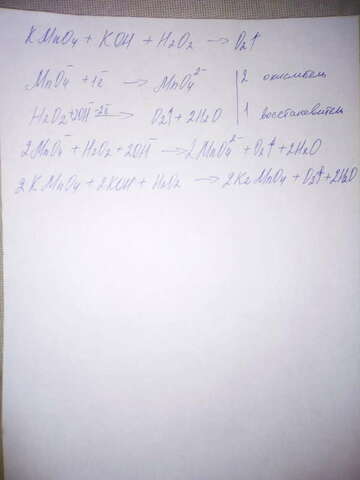 KMnO4 + KOH + H2O2 → O2↑
MnO4⁻ + 1ē → MnO4²⁻ | 2 окислитель
H2O2 + 2OH⁻ -2ē → O2↑ + 2H2O | 1 восстановитель
2MnO4⁻ + H2O2 + 2OH⁻ → 2MnO4²⁻ + O2↑ + 2H2O
2KMnO4 + 2KOH + H2O2 → 2K2MnO4 + O2↑ + 2H2O